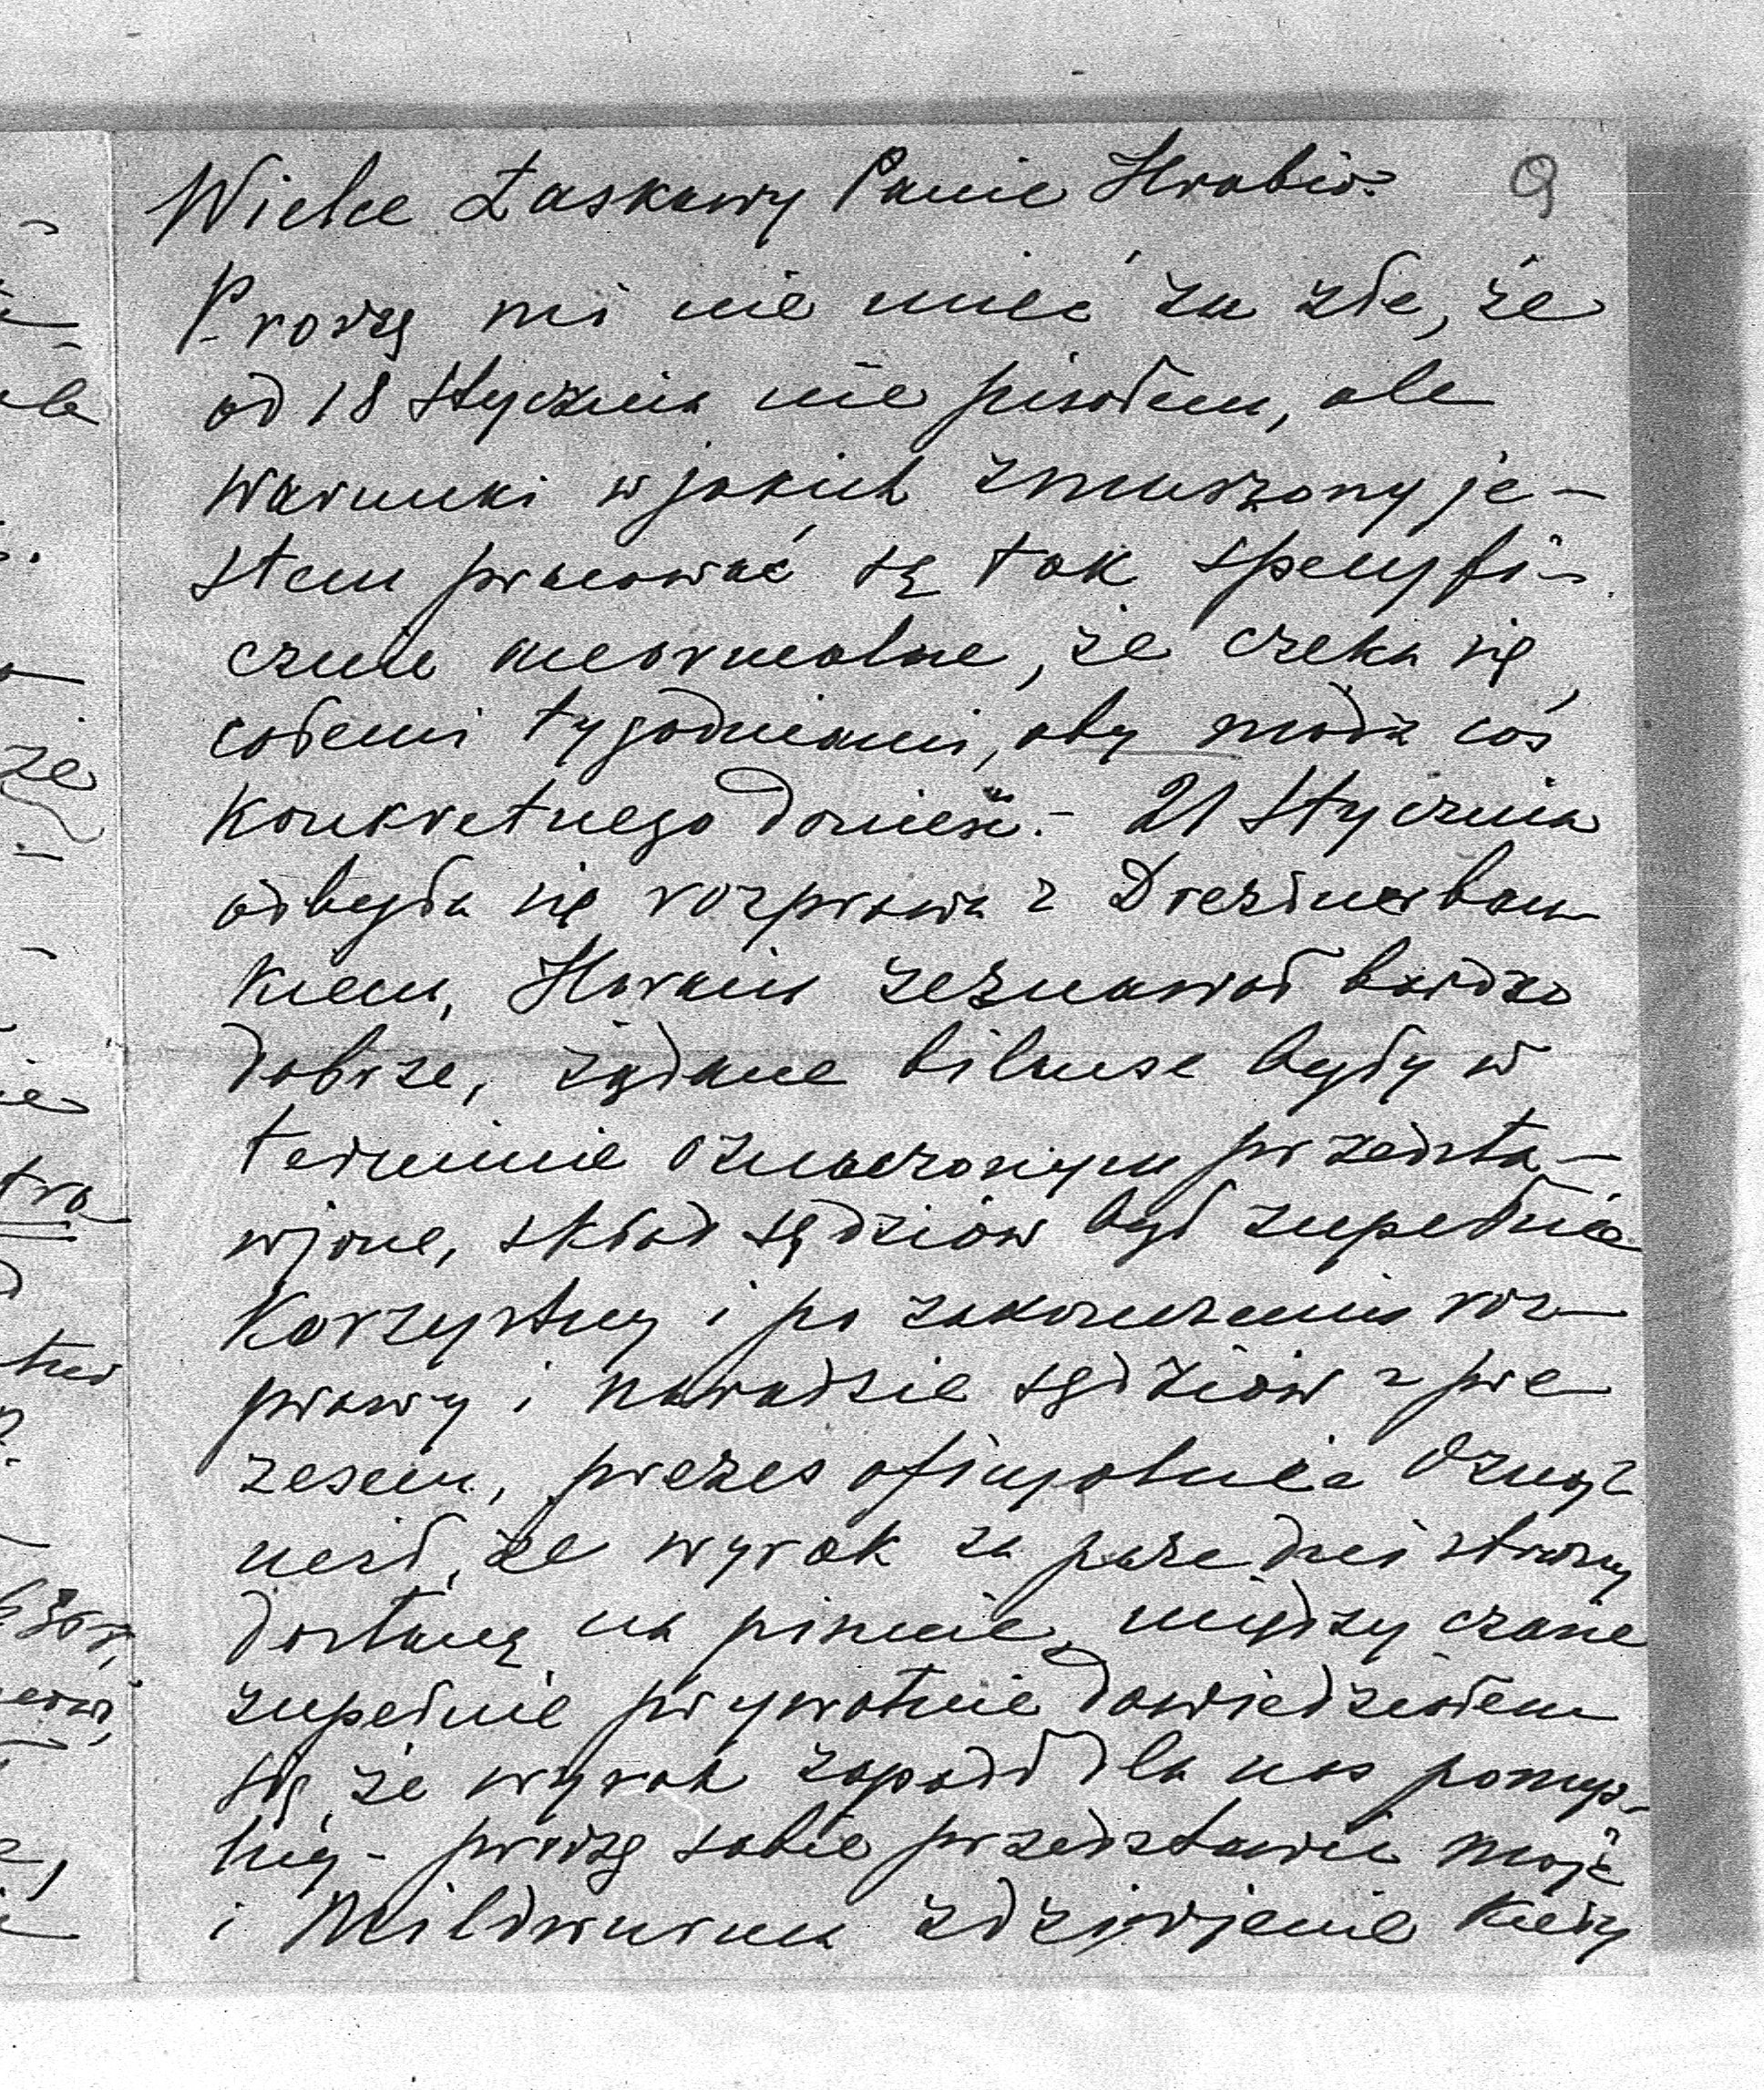 9
Wielce Łaskawy Panie Hrabio.
Proszę mi nie mieć za złe, że
od 18 Stycznia nie pisałem, ale
warunki w jakich zmuszony je-
stem pracować są tak specyfi-
cznie nienormalne, że czeka się
całemi tygodniami, aby módz coś
konkretnego donieść.- 21 Stycznia
odbyła się rozprawa z Drezdnerban
kiem, zeznawał bardzo
dobrze, żądane bilanse były w
terminie oznaczonym przedsta-
wjone, skład sędziów był zupełnie
korzystny i po zakończeniu roz-
prawy i naradzie sędziów z pre
zesem, prezes oficjalnie oznaj-
mił, że wyrok za parę dni strony
dostaną na piśmie, międzyczasie
zupełnie prywatnie dowiedziałem
się, że wyrok zapadł dla nas pomyś-
lnie - proszę sobie przedstawić moje
i Mildwurma zdziwjenie kiedy